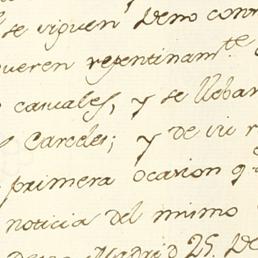 se siguen Demo
queren repentinam.te
casuales, y se lleban
Carceles; y de
primera ocasion q
noticia del mismo
Madrid 25. De